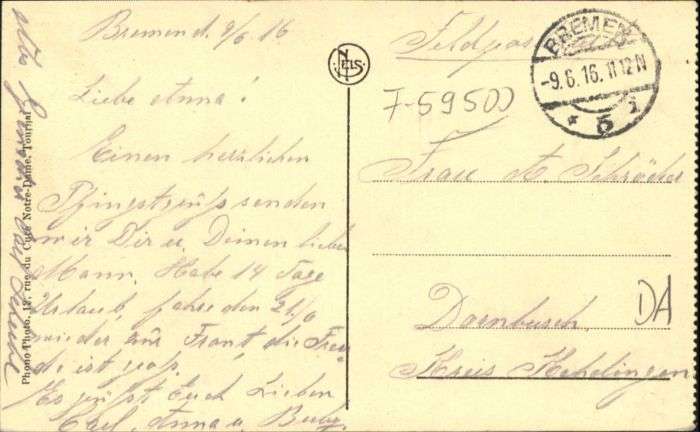 Bremen d. 9/6 16
Liebe Anna!
Einen herzlichen
Pfingstgruß senden
wir Dir u. Deinen lieben
Mann. Habe 14 Tage
Urlaub, fahre den 21/6
wieder zur Front, die Freu
de ist groß.
Es grüßt Euch Lieben
Carl, Anna u.
NELS
Phono-Photo, 12, rue du Curé Notre-Dame, Tournai
Feldpost
BREMEN
-9.6.16. 11-12N
* 5 i
7-59500
Frau A. Schröder
Dornbusch
Kreis Kehdingen
DA